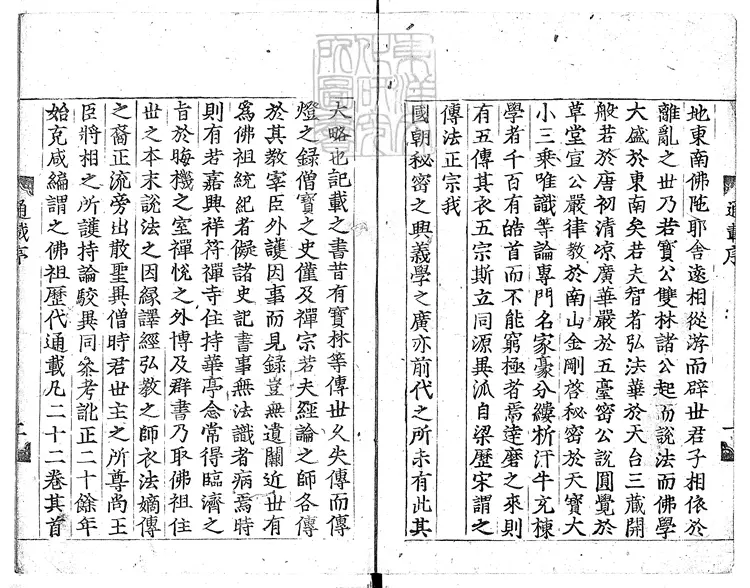 地東南佛陁耶舍遠相從游而辟世君子相依於
離亂之世乃若寶公雙林諸公起而說法而佛學
大盛於東南矣若夫智者弘法華於天台三藏開
般若於唐初清涼廣華嚴於五臺密公說圓覺於
草堂宣公嚴律教於南山金剛啓秘密於天寶大
小三乘唯識等論專門名家豪分縷析汗牛充棟
學者千百有皓首而不能窮極者焉達磨之來則
有五傳其衣五宗斯立同源異派自梁歷宋謂之
傳法正宗我
國朝秘密之興義學之廣亦前代之所未有此其
通載序
一
大略也記載之書昔有寶林等傳世久失傳而傳
燈之錄僧寶之史僅及禪宗若夫經論之師各傳
於其教宰臣外護因事而見錄豈無遺闕近世有
爲佛祖統紀者儗諸史記書事無法識者病焉時
則有若嘉興祥符禪寺住持華亭念常得臨濟之
旨於晦機之室禪悅之外博及群書乃取佛祖住
世之本末說法之因緣譯經弘教之師衣法嫡傳
之裔正流旁出散聖異僧時君世主之所尊尚王
臣將相之所護持論駁異同叅考訛正二十餘年
始克成編謂之佛祖歷代通載凡二十二卷其首
通載序
二